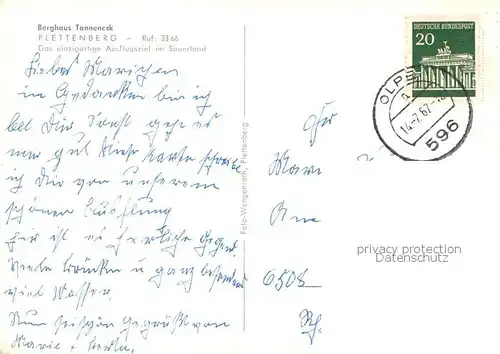 Berghaus Tanneneck
PLETTENBERG – Ruf: 3366
Das einzigartige Ausflugsziel im Sauerland
Liebes
in Gedanken bin ich
bei Dir Sonst geht es
mir gut Diese Karte schreibe
ich Dir von unserem
schönen Ausflug
hier ist es herrliche Gegend.
Viele Brücken u ganz besonders
viel Wasser.
Nun sei schön gegrüßt von
Marie +
Foto-Wengenroth, Plettenberg
DEUTSCHE BUNDESPOST
20
OLPE
14.-7.67-18
596
privacy protection
Datenschutz
6508